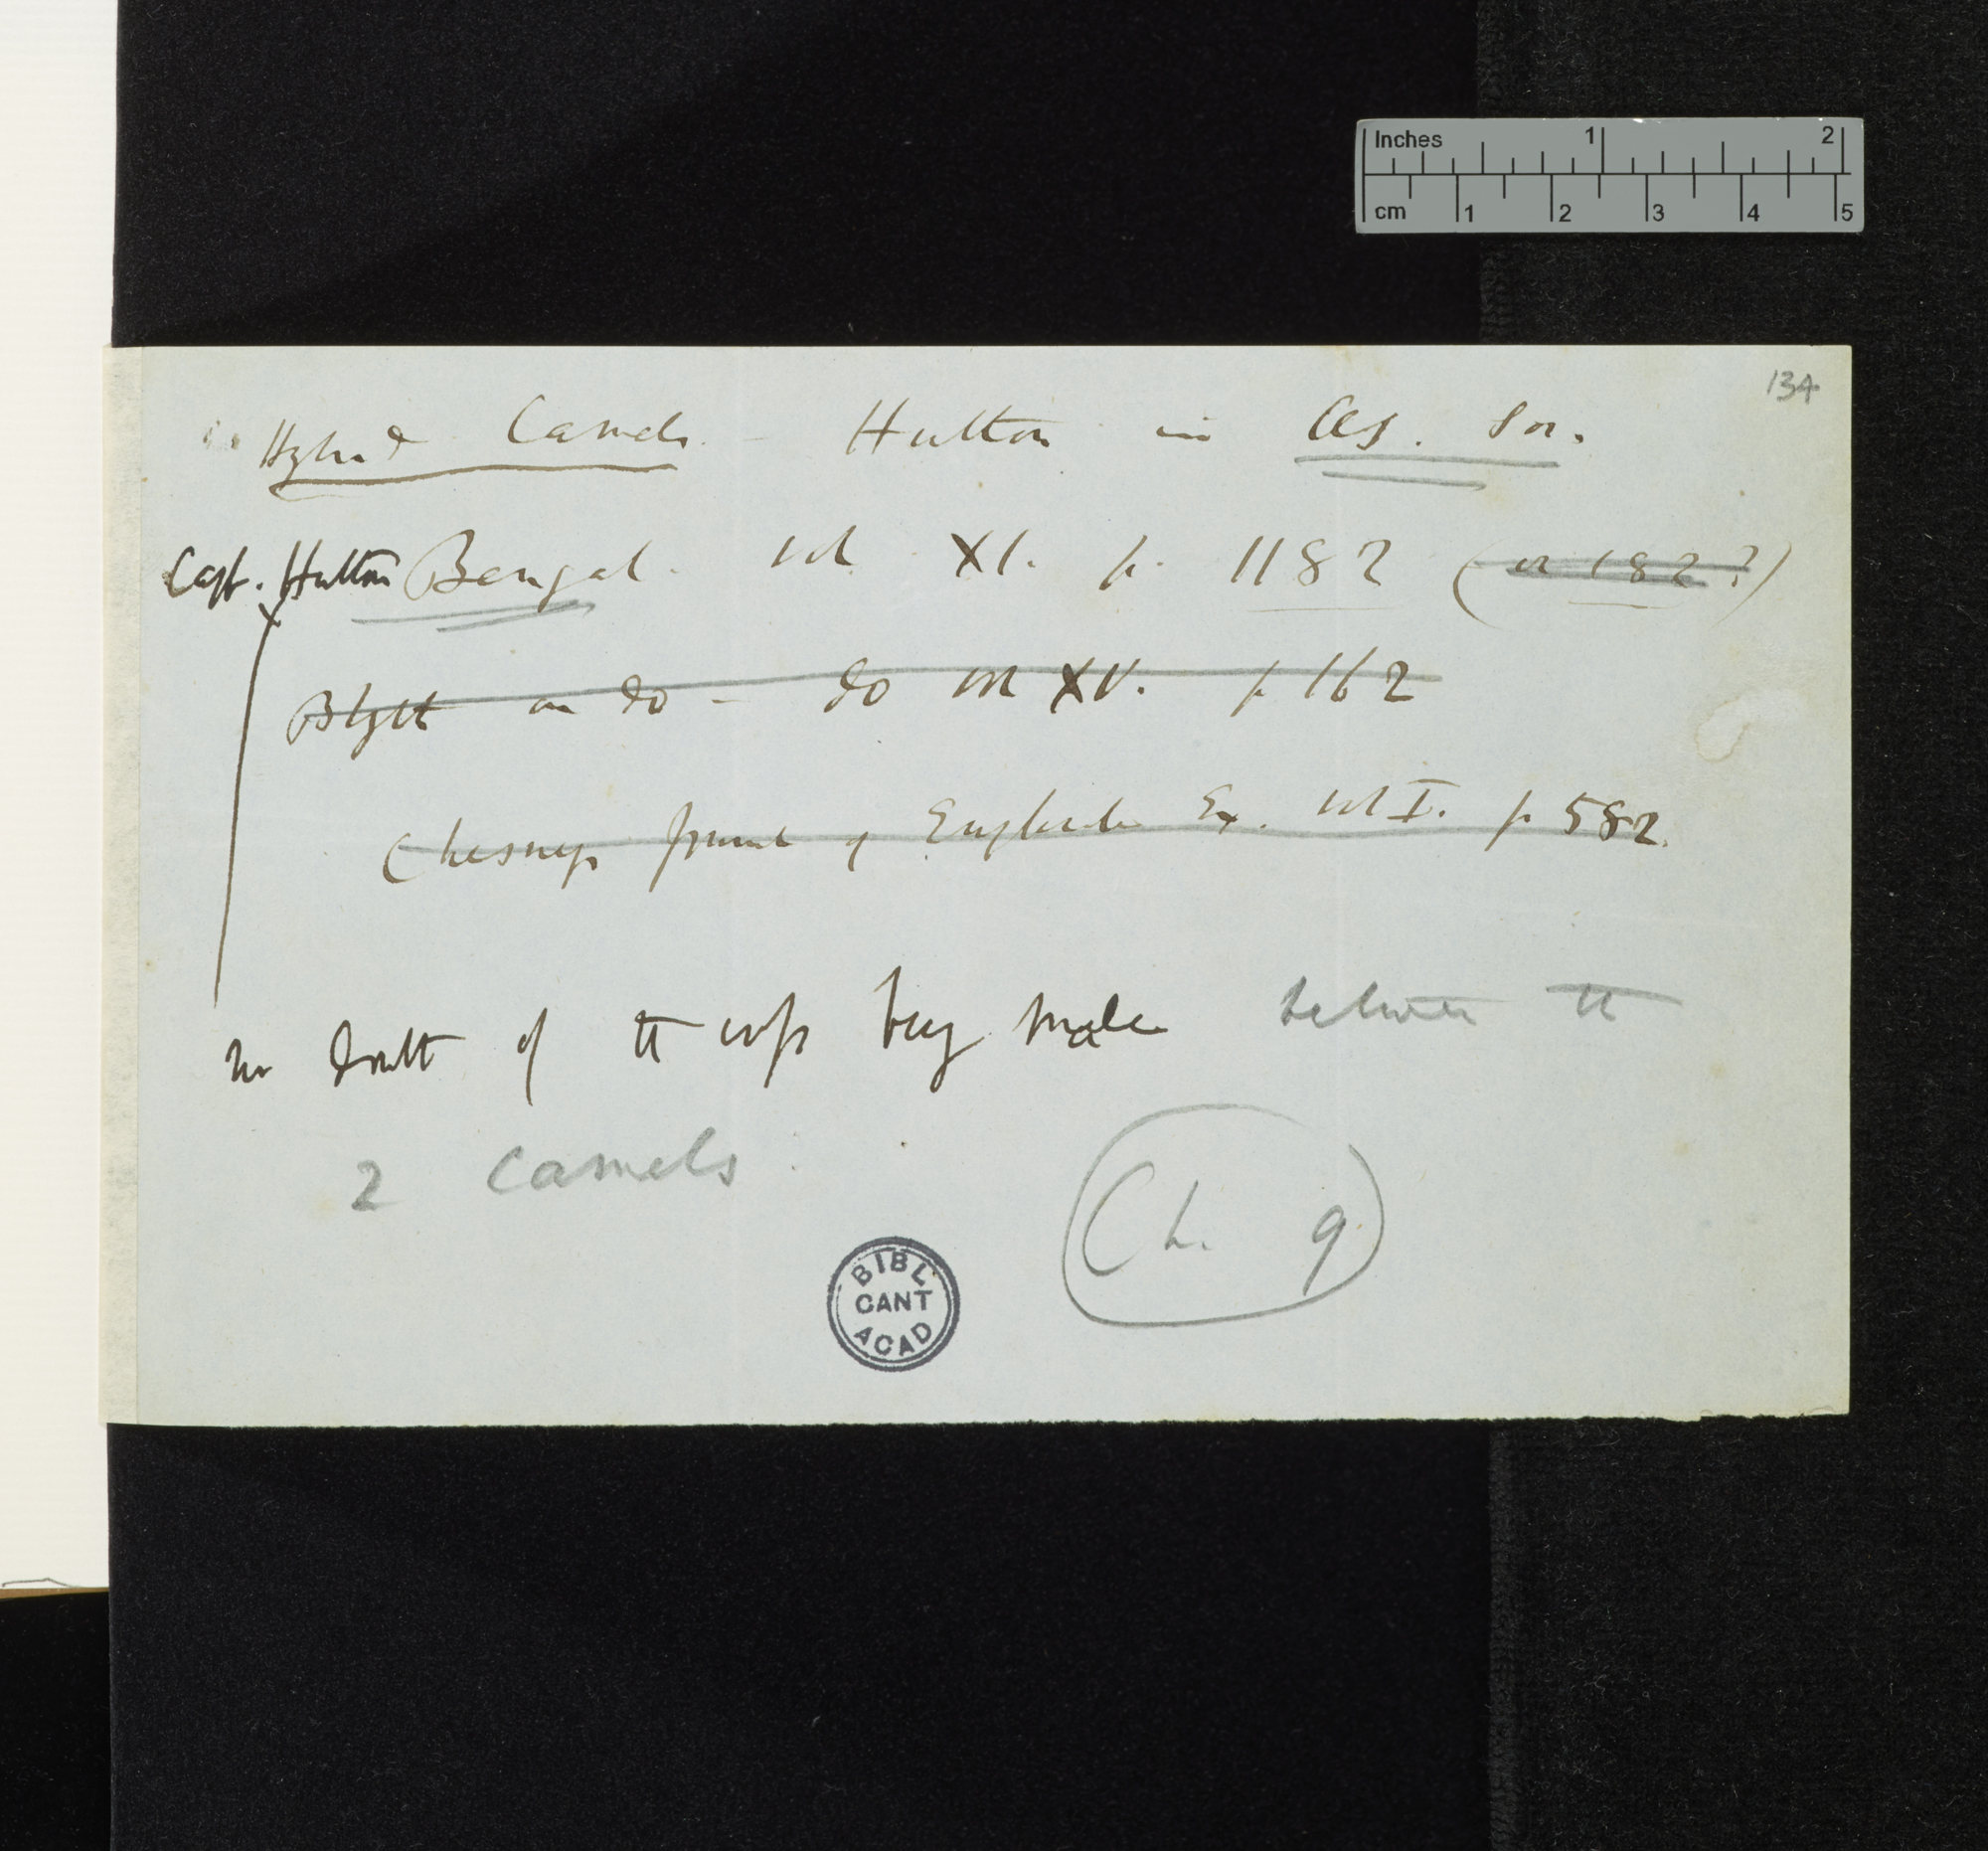 Inches 1 2
cm 1 2 3 4 5
134
Hybrid Camels - Hutton in As. Soc.
Capt. Hutton Bengal. vol XI. p. 1182 (or 182?)
Blyth in do - do vol XV. p 162
Chesney's Journal of Euphrates Ex. vol I. p 582.
no doubt of the cross being made between the
2 Camels.
Ch. 9
BIBL
CANT
ACAD